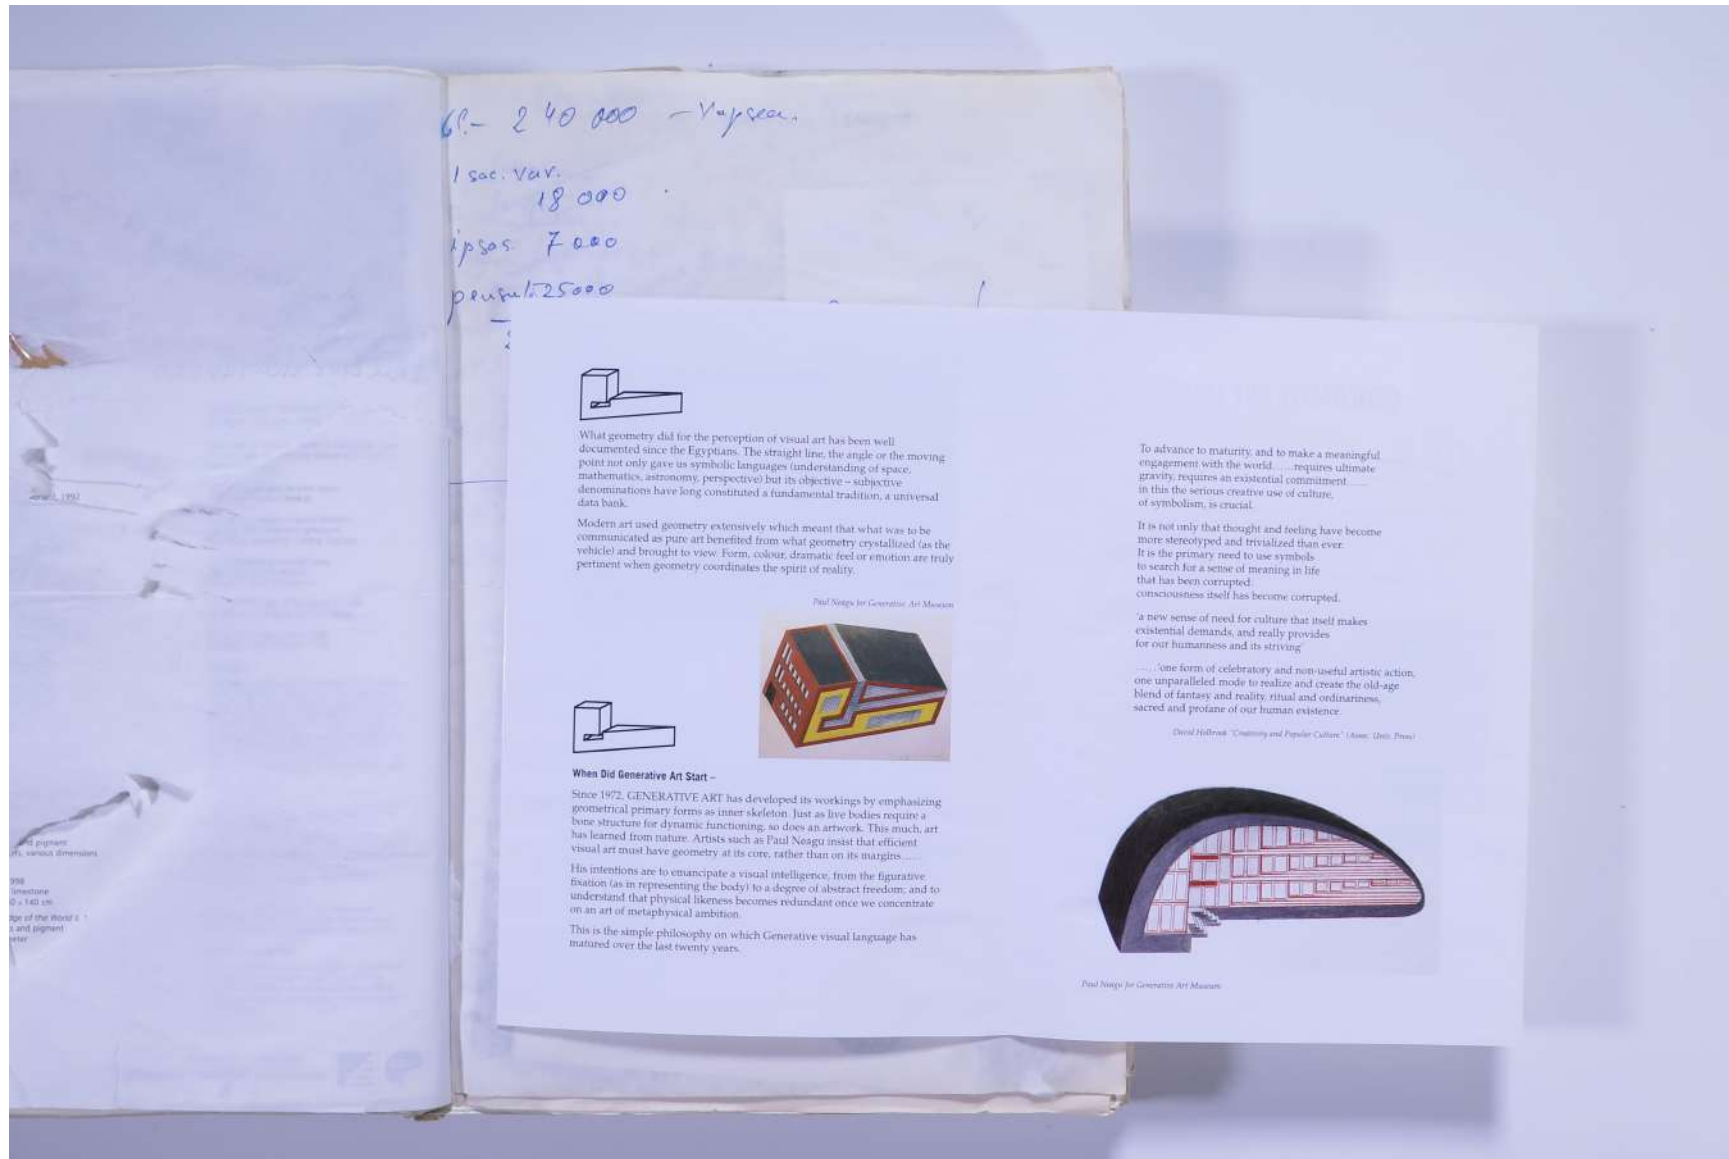 240 000 – Vapsea.
1 sac. var.
18 000
ipsos. 7 000
25000
What geometry did for the perception of visual art has been well
documented since the Egyptians. The straight line, the angle or the moving
point not only gave us symbolic languages (understanding of space,
mathematics, astronomy, perspective) but its objective – subjective
denominations have long constituted a fundamental tradition, a universal
data bank.
Modern art used geometry extensively which meant that what was to be
communicated as pure art benefited from what geometry crystallized (as the
vehicle) and brought to view. Form, colour, dramatic feel or emotion are truly
pertinent when geometry coordinates the spirit of reality.
Paul Neagu for Generative Art Museum
When Did Generative Art Start –
Since 1972, GENERATIVE ART has developed its workings by emphasizing
geometrical primary forms as inner skeleton. Just as live bodies require a
bone structure for dynamic functioning, so does an artwork. This much, art
has learned from nature. Artists such as Paul Neagu insist that efficient
visual art must have geometry at its core, rather than on its margins......
His intentions are to emancipate a visual intelligence, from the figurative
fixation (as in representing the body) to a degree of abstract freedom; and to
understand that physical likeness becomes redundant once we concentrate
on an art of metaphysical ambition.
This is the simple philosophy on which Generative visual language has
matured over the last twenty years.
To advance to maturity, and to make a meaningful
engagement with the world.......requires ultimate
gravity, requires an existential commitment......
in this the serious creative use of culture,
of symbolism, is crucial.
It is not only that thought and feeling have become
more stereotyped and trivialized than ever.
It is the primary need to use symbols
to search for a sense of meaning in life
that has been corrupted:
consciousness itself has become corrupted.
'a new sense of need for culture that itself makes
existential demands, and really provides
for our humanness and its striving'
......'one form of celebratory and non-useful artistic action,
one unparalleled mode to realize and create the old-age
blend of fantasy and reality, ritual and ordinariness,
sacred and profane of our human existence.
David Holbrook "Creativity and Popular Culture" (Assoc. Univ. Press)
Paul Neagu for Generative Art Museum
1992
and pigment
various dimensions
998
limestone
140 cm
ge of the World
and pigment